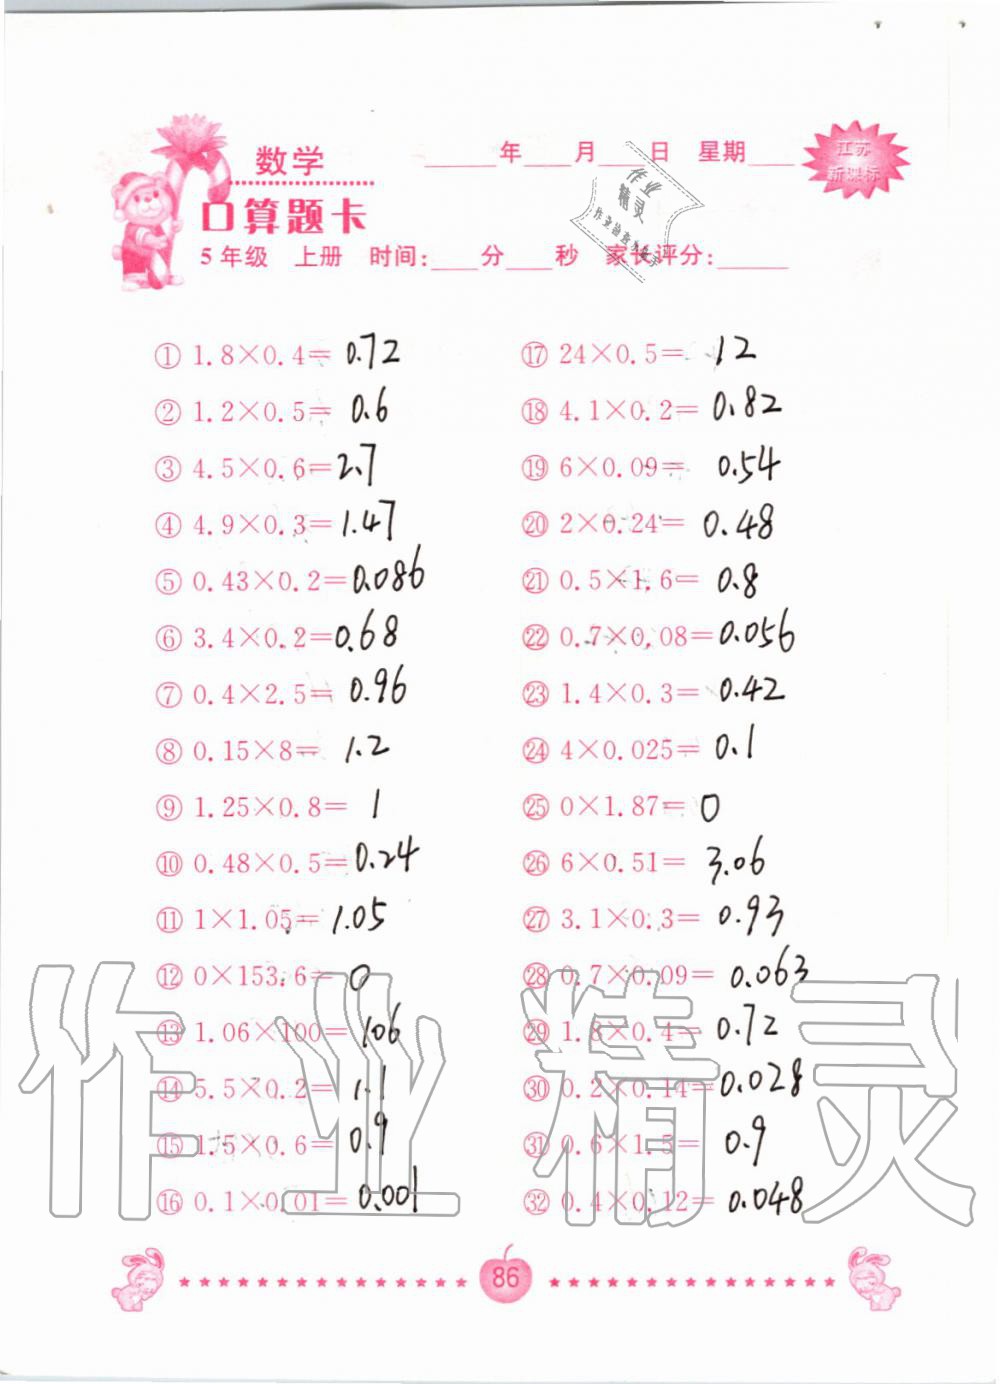 数学
____年____月____日 星期____
江苏
新课标
口算题卡
5年级 上册 时间:____分____秒 家长评分:______
作业
精灵
① 1.8×0.4= 0.72
② 1.2×0.5= 0.6
③ 4.5×0.6= 2.7
④ 4.9×0.3= 1.47
⑤ 0.43×0.2= 0.086
⑥ 3.4×0.2= 0.68
⑦ 0.4×2.5= 0.96
⑧ 0.15×8= 1.2
⑨ 1.25×0.8= 1
⑩ 0.48×0.5= 0.24
⑪ 1×1.05= 1.05
⑫ 0×153.6= 0
⑬ 1.06×100= 106
⑭ 5.5×0.2= 1.1
⑮ 1.5×0.6= 0.9
⑯ 0.1×0.01= 0.001
⑰ 24×0.5= 12
⑱ 4.1×0.2= 0.82
⑲ 6×0.09= 0.54
⑳ 2×0.24= 0.48
㉑ 0.5×1.6= 0.8
㉒ 0.7×0.08= 0.056
㉓ 1.4×0.3= 0.42
㉔ 4×0.025= 0.1
㉕ 0×1.87= 0
㉖ 6×0.51= 3.06
㉗ 3.1×0.3= 0.93
㉘ 0.7×0.09= 0.063
㉙ 1.8×0.4= 0.72
㉚ 0.2×0.14= 0.028
㉛ 0.6×1.5= 0.9
㉜ 0.4×0.12= 0.048
作业精灵
86